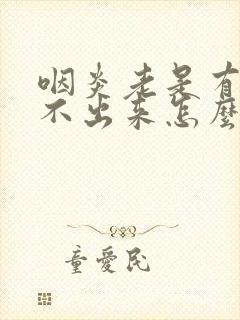 咽炎老是有
不出来怎麼
童愛民